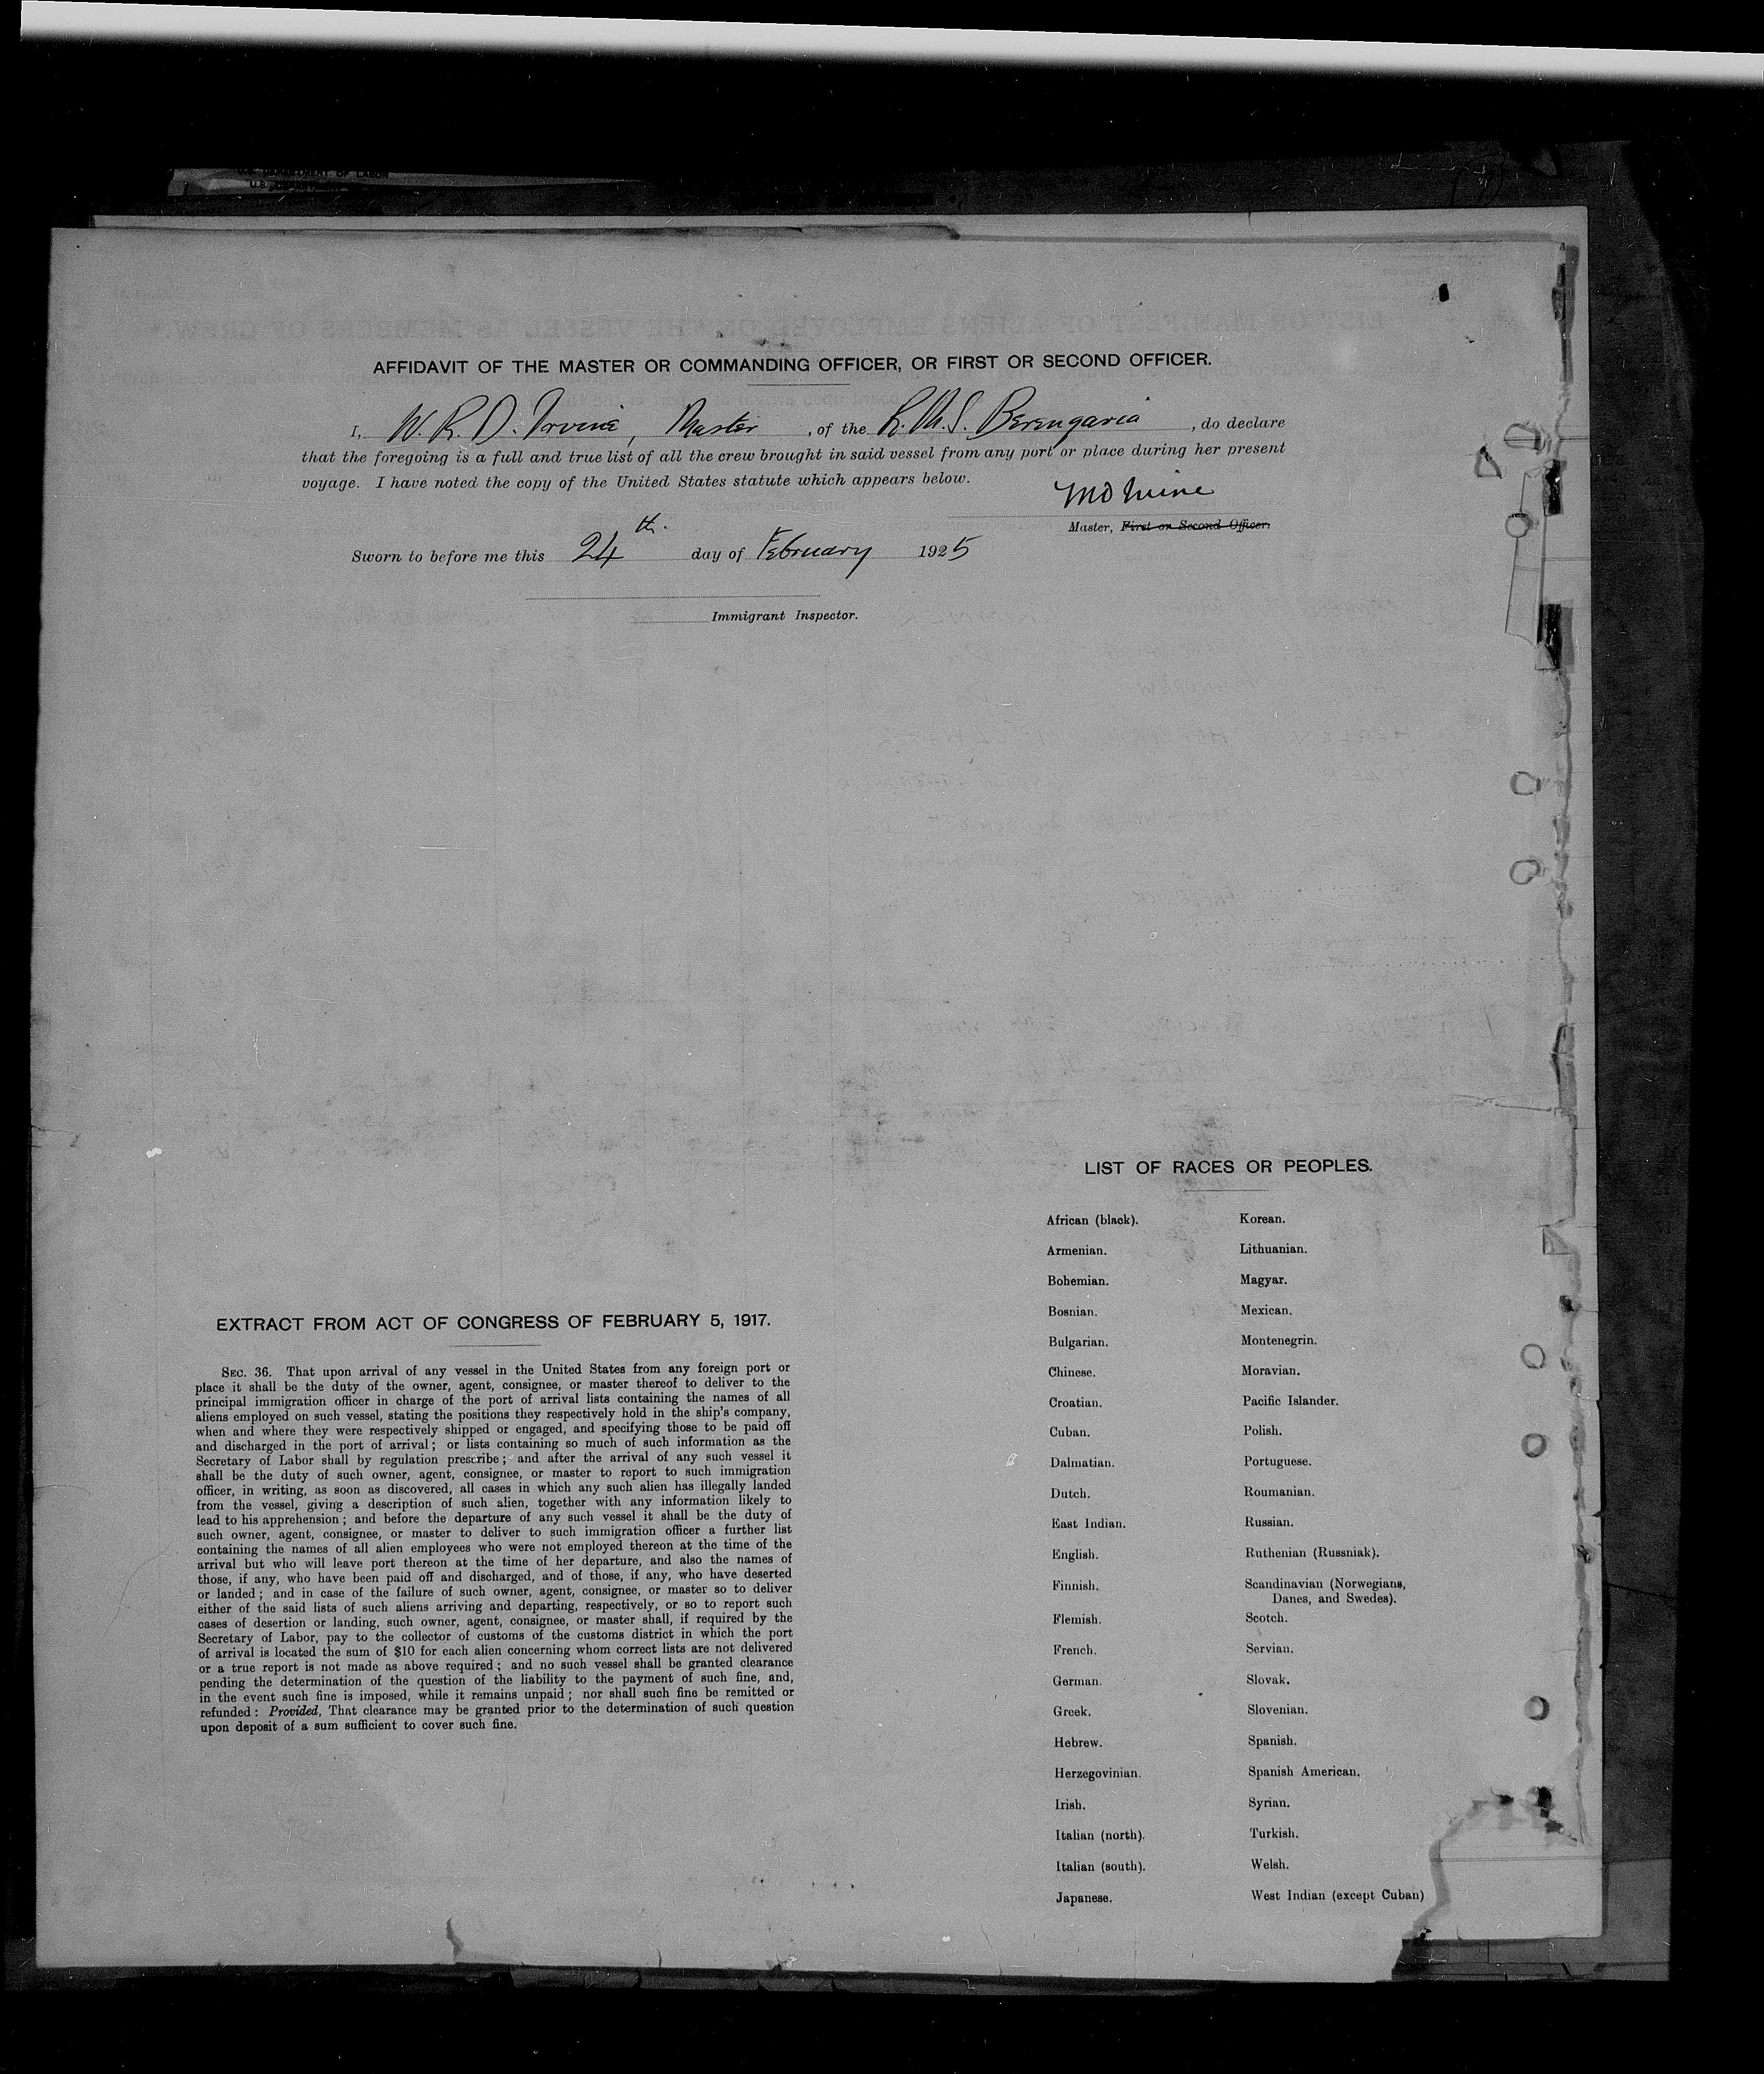 U.S. DEPARTMENT OF LABOR
AFFIDAVIT OF THE MASTER OR COMMANDING OFFICER, OR FIRST OR SECOND OFFICER.
I, W. R. D. Irvine, Master, of the R.M.S. Berengaria, do declare
that the foregoing is a full and true list of all the crew brought in said vessel from any port or place during her present
voyage. I have noted the copy of the United States statute which appears below.
Master, First or Second Officer.
Sworn to before me this 24th. day of February 1925
Immigrant Inspector.
LIST OF RACES OR PEOPLES.
African (black).
Armenian.
Bohemian.
Bosnian.
Bulgarian.
Chinese.
Croatian.
Cuban.
Dalmatian.
Dutch.
East Indian.
English.
Finnish.
Flemish.
French.
German.
Greek.
Hebrew.
Herzegovinian.
Irish.
Italian (north).
Italian (south).
Japanese.
Korean.
Lithuanian.
Magyar.
Mexican.
Montenegrin.
Moravian.
Pacific Islander.
Polish.
Portuguese.
Roumanian.
Russian.
Ruthenian (Russniak).
Scandinavian (Norwegians,
Danes, and Swedes).
Scotch.
Servian.
Slovak.
Slovenian.
Spanish.
Spanish American.
Syrian.
Turkish.
Welsh.
West Indian (except Cuban)
EXTRACT FROM ACT OF CONGRESS OF FEBRUARY 5, 1917.
SEC. 36. That upon arrival of any vessel in the United States from any foreign port or
place it shall be the duty of the owner, agent, consignee, or master thereof to deliver to the
principal immigration officer in charge of the port of arrival lists containing the names of all
aliens employed on such vessel, stating the positions they respectively hold in the ship's company,
when and where they were respectively shipped or engaged, and specifying those to be paid off
and discharged in the port of arrival; or lists containing so much of such information as the
Secretary of Labor shall by regulation prescribe; and after the arrival of any such vessel it
shall be the duty of such owner, agent, consignee, or master to report to such immigration
officer, in writing, as soon as discovered, all cases in which any such alien has illegally landed
from the vessel, giving a description of such alien, together with any information likely to
lead to his apprehension; and before the departure of any such vessel it shall be the duty of
such owner, agent, consignee, or master to deliver to such immigration officer a further list
containing the names of all alien employees who were not employed thereon at the time of the
arrival but who will leave port thereon at the time of her departure, and also the names of
those, if any, who have been paid off and discharged, and of those, if any, who have deserted
or landed; and in case of the failure of such owner, agent, consignee, or master so to deliver
either of the said lists of such aliens arriving and departing, respectively, or so to report such
cases of desertion or landing, such owner, agent, consignee, or master shall, if required by the
Secretary of Labor, pay to the collector of customs of the customs district in which the port
of arrival is located the sum of $10 for each alien concerning whom correct lists are not delivered
or a true report is not made as above required; and no such vessel shall be granted clearance
pending the determination of the question of the liability to the payment of such fine, and,
in the event such fine is imposed, while it remains unpaid; nor shall such fine be remitted or
refunded: Provided, That clearance may be granted prior to the determination of such question
upon deposit of a sum sufficient to cover such fine.